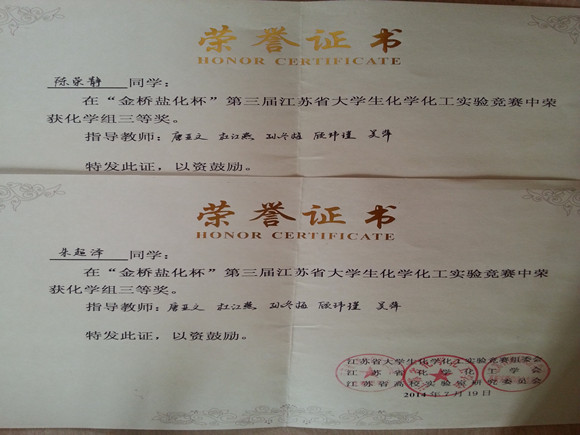 荣誉证书
HONOR CERTIFICATE
陈荣静 同学：
在“金桥盐化杯”第三届江苏省大学生化学化工实验竞赛中荣
获化学组三等奖。
指导教师：唐亚文 杜江燕 孙冬梅 顾玮瑾 吴萍
特发此证，以资鼓励。
荣誉证书
HONOR CERTIFICATE
朱超泽 同学：
在“金桥盐化杯”第三届江苏省大学生化学化工实验竞赛中荣
获化学组三等奖。
指导教师：唐亚文 杜江燕 孙冬梅 顾玮瑾 吴萍
特发此证，以资鼓励。
江苏省大学生化学化工实验竞赛组委会
江苏省化学化工学会
江苏省高校实验室研究委员会
2014年7月19日